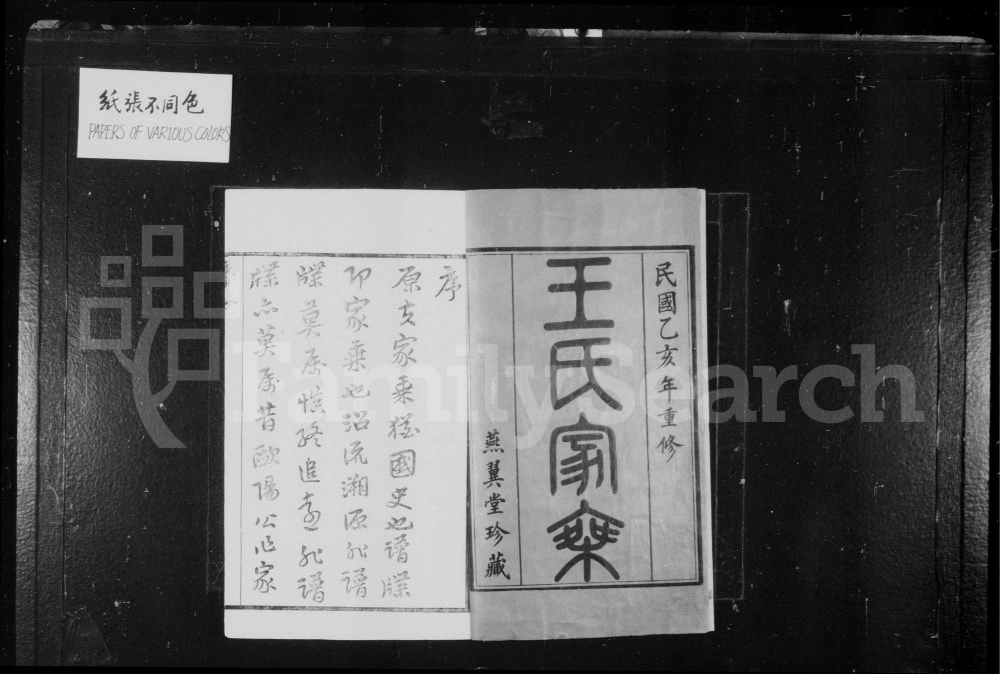 紙張不同色
PAPERS OF VARIOUS COLORS
民國乙亥年重修
王氏家乘
燕翼堂珍藏
序
原夫家乘猶國史也譜牒
即家乘也沿流溯源非譜
牒莫属慎終追遠非譜
牒亦莫属昔歐陽公作家
FamilySearch